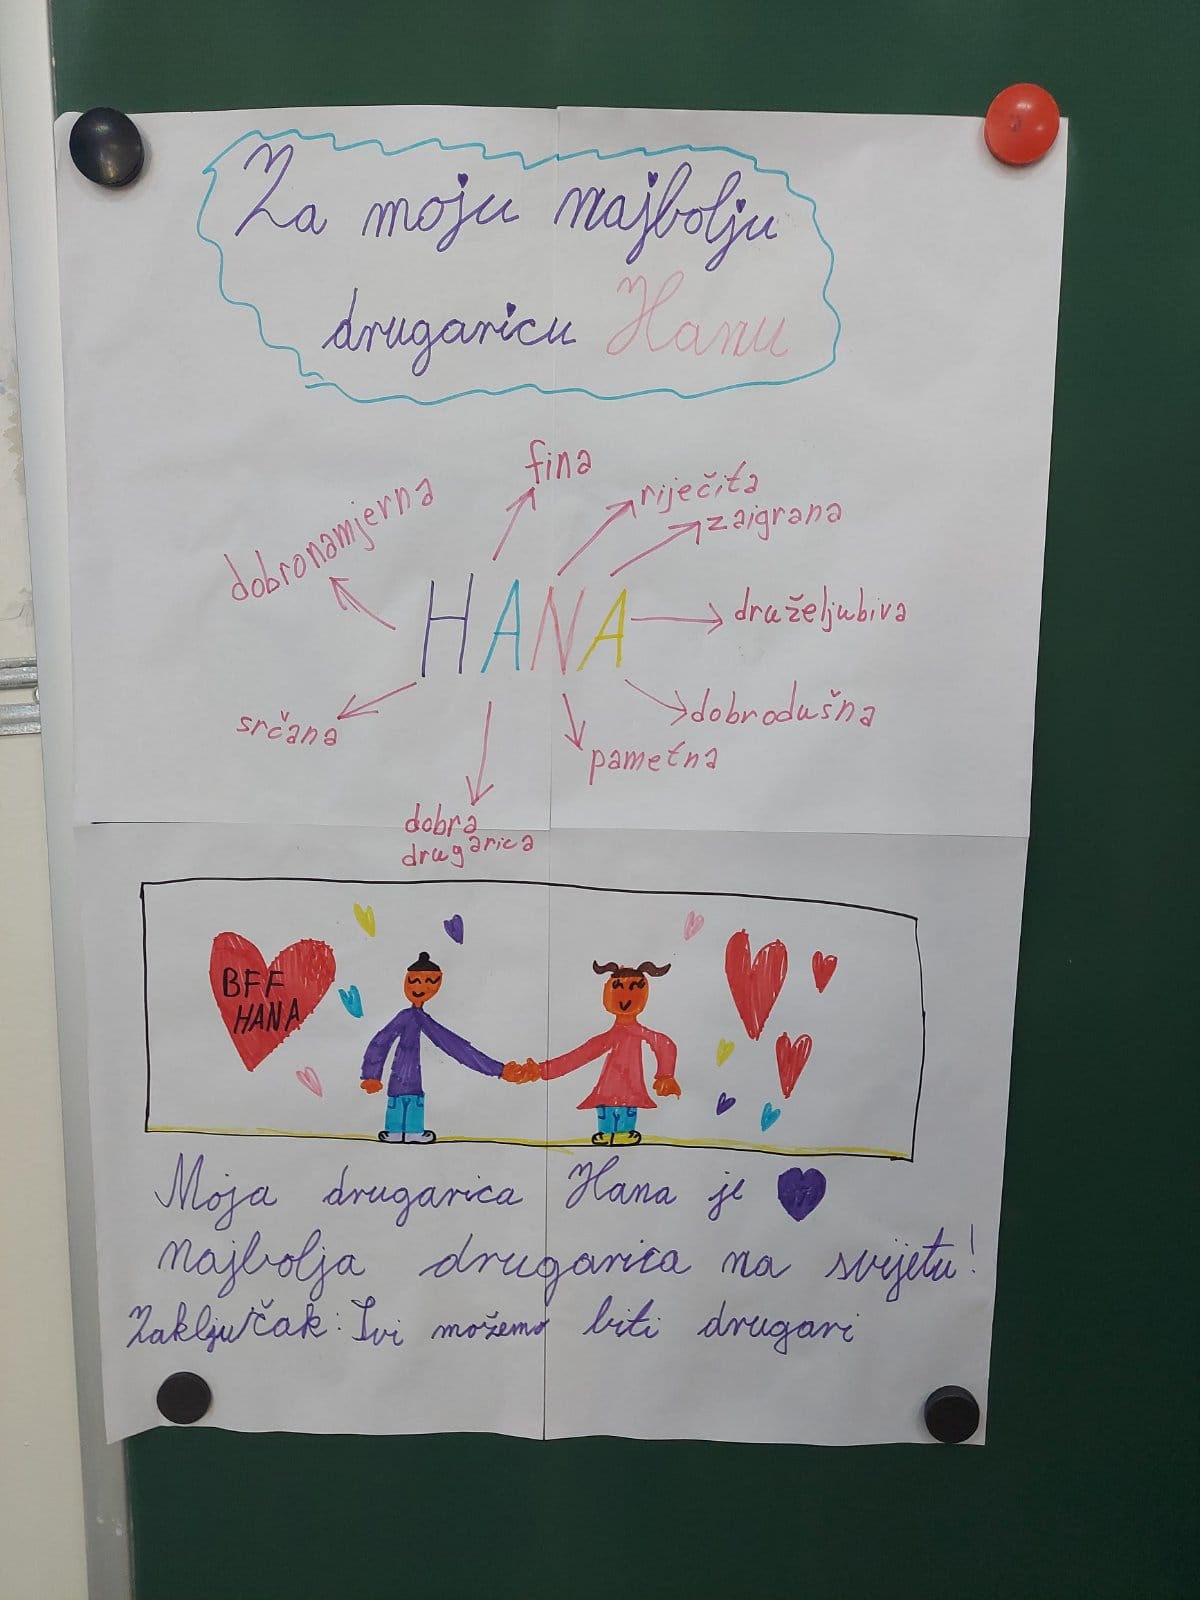 Za moju najbolju
drugaricu Hanu
fina
dobronamjerna
riječita
zaigrana
HANA
druželjubiva
srčana
dobrodušna
pametna
dobra
drugarica
BFF
HANA
Moja drugarica Hana je
najbolja drugarica na svijetu!
Zaključak: Svi možemo biti drugari